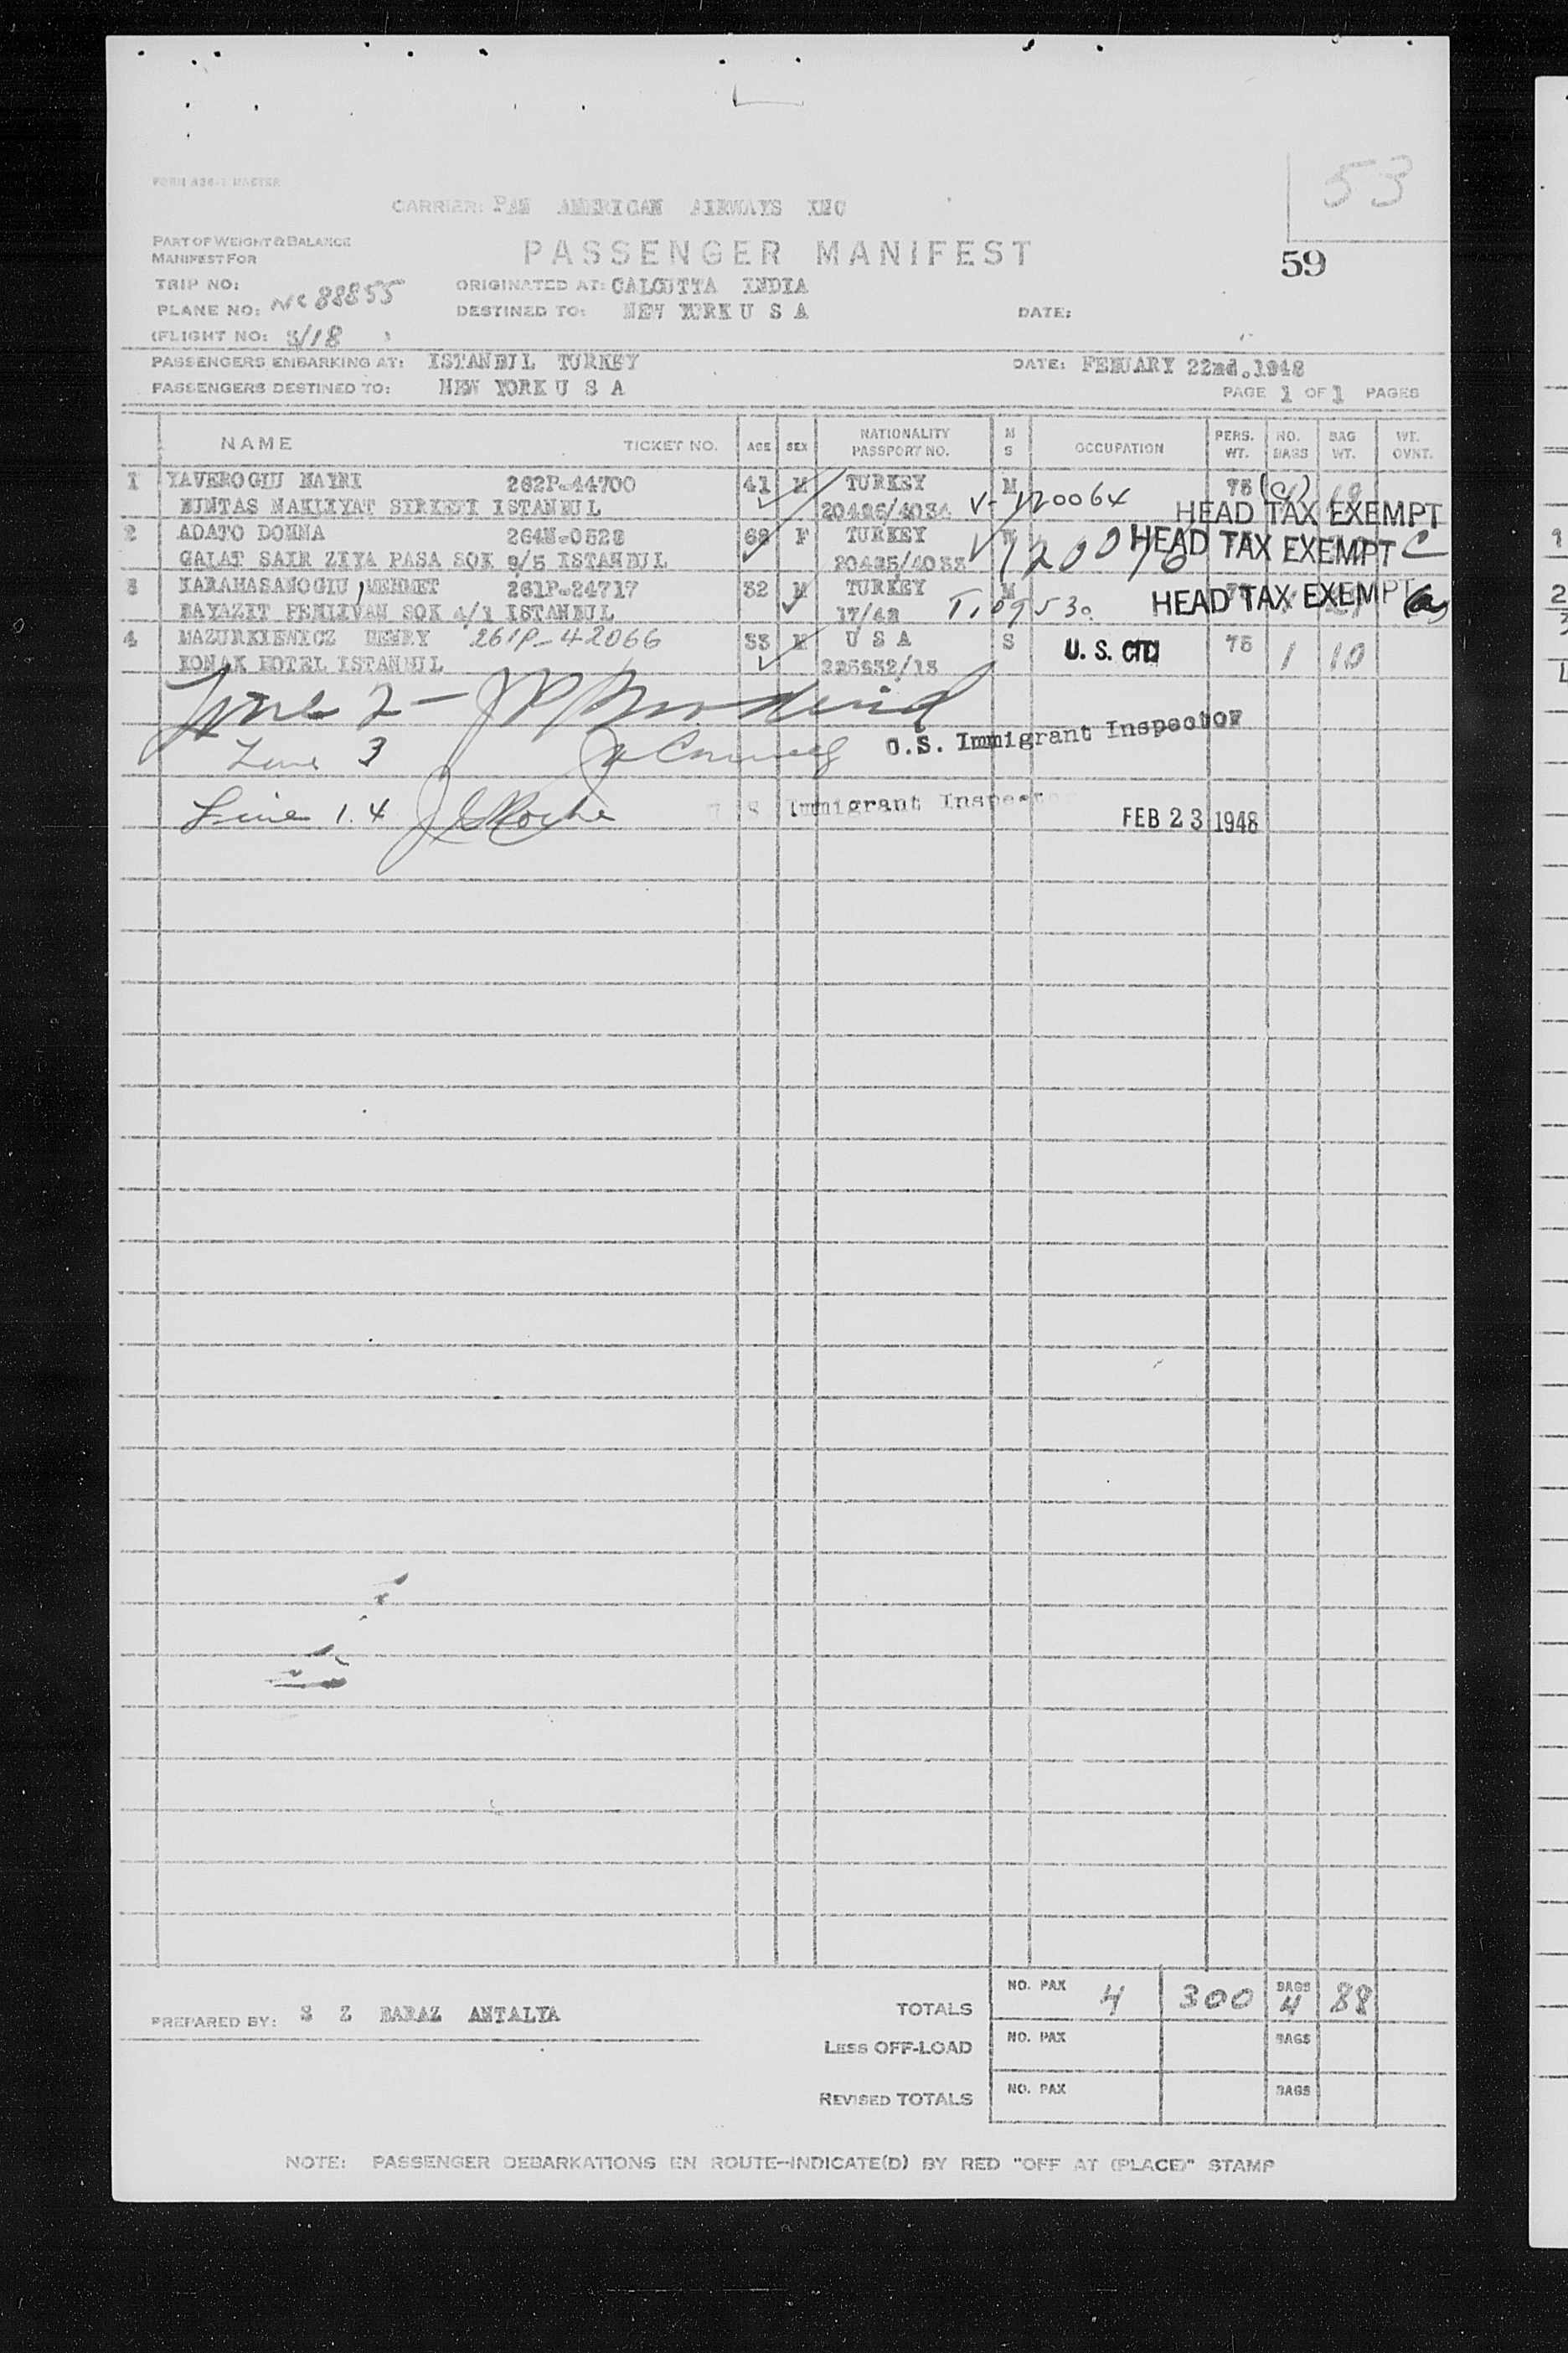 53
CARRIER: PAN AMERICAN AIRWAYS INC
PART OF WEIGHT & BALANCE
MANIFEST FOR
PASSENGER MANIFEST
59
TRIP NO:
ORIGINATED AT: CALCUTTA INDIA
PLANE NO: NC 88855
DESTINED TO: NEW YORK U S A
DATE:
(FLIGHT NO: 3/18 )
PASSENGERS EMBARKING AT: ISTANBUL TURKEY
DATE: FEBUARY 22nd.1948
PASSENGERS DESTINED TO: NEW YORK U S A
PAGE 1 OF 1 PAGES
NAME TICKET NO. AGE SEX NATIONALITY PASSPORT NO. M S OCCUPATION PERS. WT. NO. BAGS BAG WT. WT. OVNT.
1 YAVEROGLU 262P-44700 41 M TURKEY M 75
NAKLIYAT ISTANBUL 20426/4034 V-120064 HEAD TAX EXEMPT
2 ADATO DONNA 264N-0528 68 F TURKEY HEAD TAX EXEMPT C
GALAT SAIR ZIYA PASA SOK 9/5 ISTANBUL 20425/4033
3 KARAHASANOGLU, MEHMET 261P-24717 32 M TURKEY M HEAD TAX EXEMPT
BAYAZIT PEHLIVAN SOK 4/1 ISTANBUL 17/42
4 MAZURKIEWICZ HENRY 261P-42066 33 M U S A S U.S. CITI 75 1 10
KONAK HOTEL ISTANBUL 225232/13
Line 2 -
U.S. Immigrant Inspector
Line 3
Line 1.4 J Roche
U.S. Immigrant Inspector
FEB 23 1948
PREPARED BY: S Z BARAZ ANTALYA
TOTALS NO. PAX 4 300 BAGS 4 88
LESS OFF-LOAD NO. PAX BAGS
REVISED TOTALS NO. PAX BAGS
NOTE: PASSENGER DEBARKATIONS EN ROUTE-INDICATE(D) BY RED "OFF AT (PLACE)" STAMP